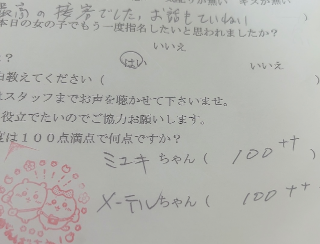 最高の接客でした。お話もていねい
本日の女の子でもう一度指名したいと思われましたか？
いいえ
？ はい いいえ
教えてください（ ）
スタッフまでお声を聴かせて下さいませ。
役立てたいのでご協力お願いします。
は１００点満点で何点ですか？
ミユキちゃん（ 100++ ）
メーテルちゃん（ 100++